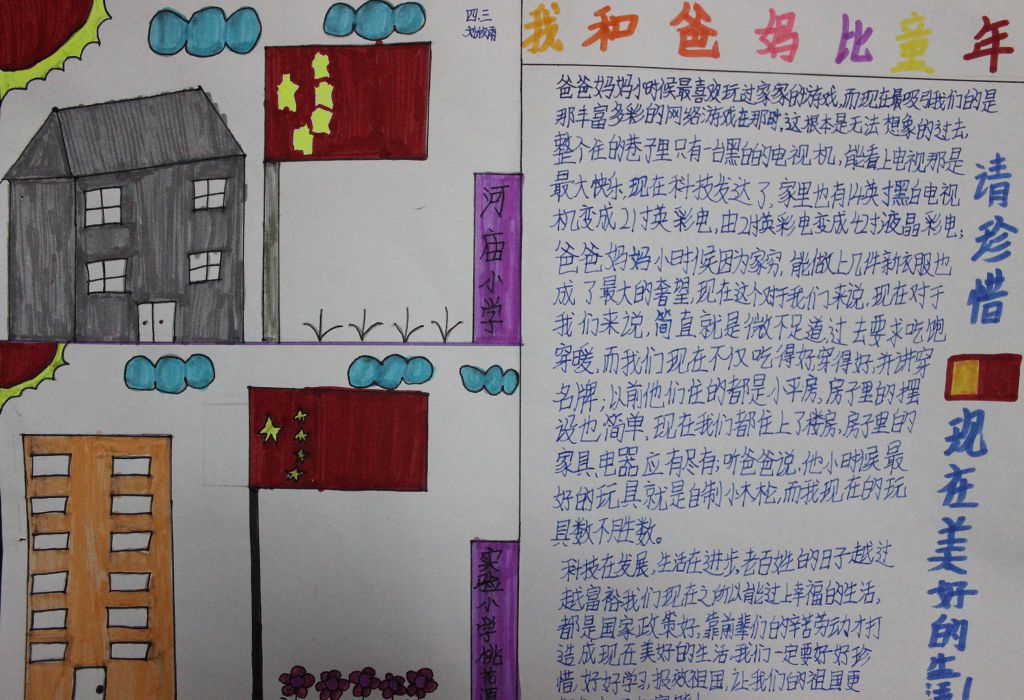 四.三
刘欣雨
河庙小学
实验小学桃花源
我和爸妈比童年
爸爸妈妈小时候最喜欢玩过家家的游戏,而现在最吸引我们的是
那丰富多彩的网络游戏在那时,这根本是无法想象的过去,
整个住的巷子里只有一台黑白的电视机,能看上电视那是
最大快乐,现在科技发达了,家里也有14英寸黑白电视
机变成21寸英彩电,由21寸英彩电变成42寸液晶彩电;
爸爸妈妈小时候因为家穷,能做上几件新衣服也
成了最大的奢望,现在这个对于我们来说,现在对于
我们来说,简直就是微不足道,过去要求吃饱
穿暖,而我们现在不仅吃得好,穿得好,并讲穿
名牌;以前他们住的都是小平房,房子里的摆
设也简单,现在我们都住上了楼房,房子里的
家具,电器应有尽有;听爸爸说,他小时候最
好的玩具就是自制小木枪,而我现在的玩
具数不胜数。
科技在发展,生活在进步,老百姓的日子越过
越富裕我们现在之所以能过上幸福的生活,
都是国家政策好,靠前辈们的辛苦劳动才打
造成现在美好的生活,我们一定要好好珍
惜,好好学习,报效祖国,让我们的祖国更
请珍惜
现在美好的生